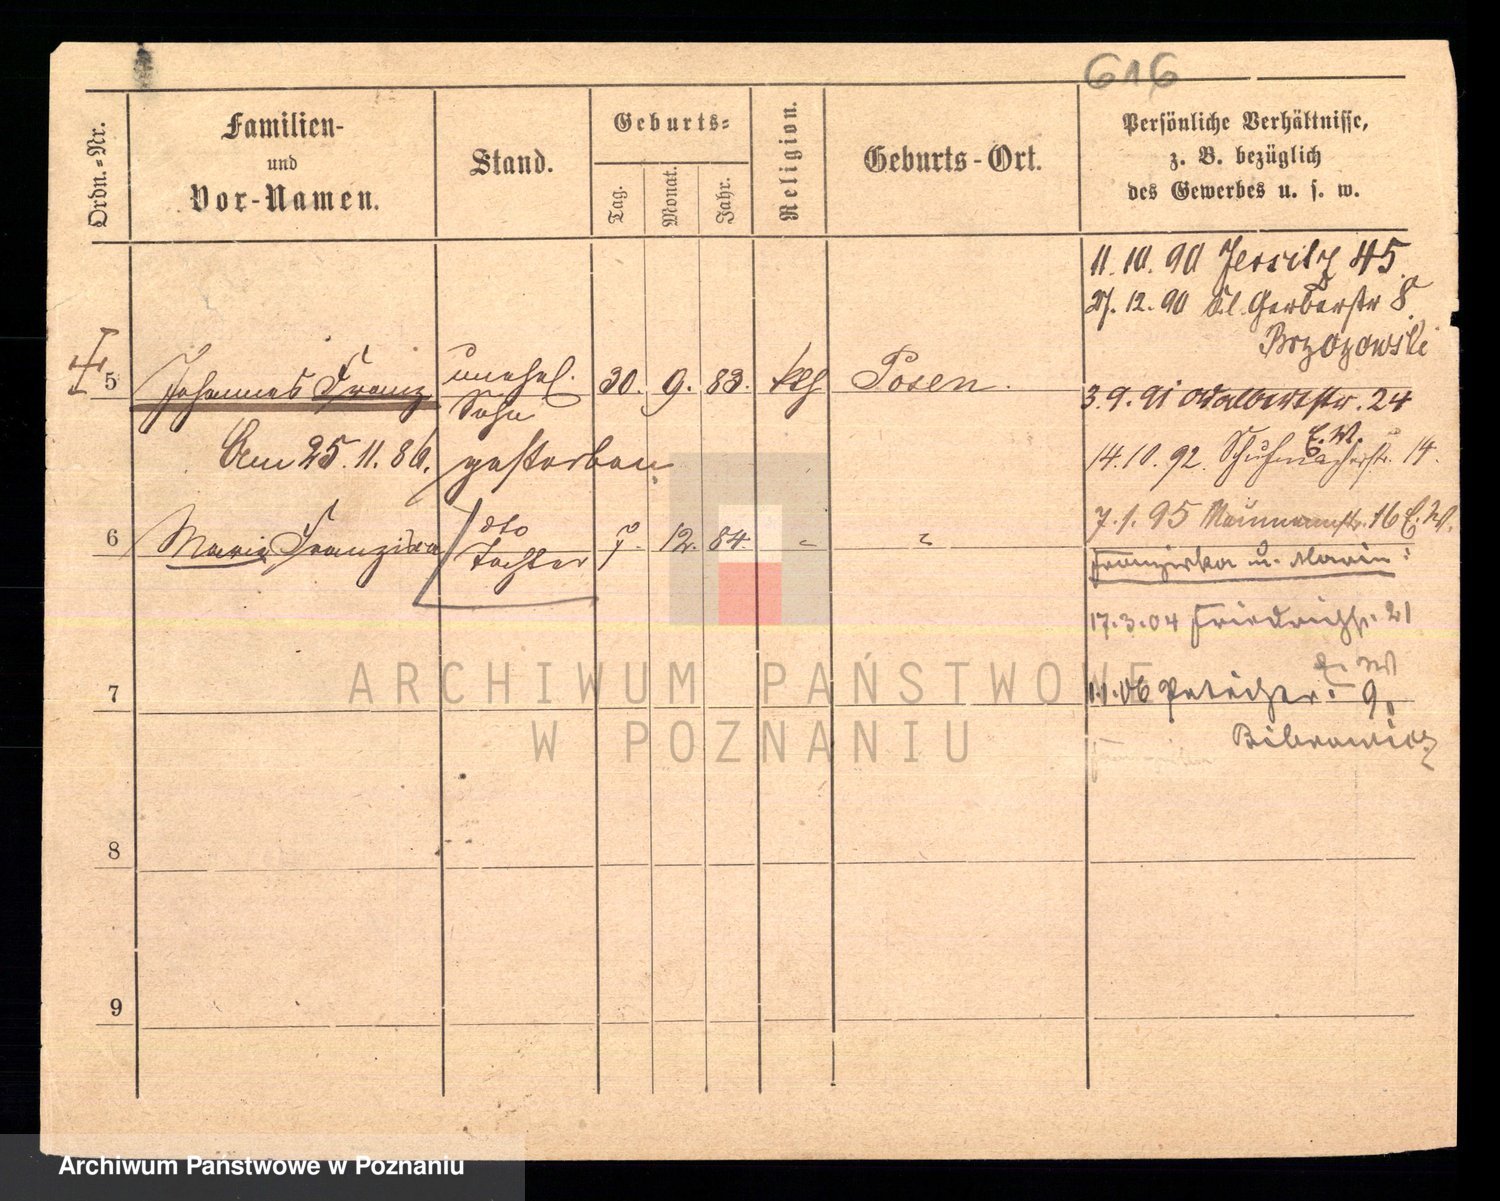 616
Ordn.-Nr.
Familien-
und
Vor-Namen.
Stand.
Geburts-
Tag.
Monat.
Jahr.
Religion.
Geburts-Ort.
Persönliche Verhältnisse,
z. B. bezüglich
des Gewerbes u. s. w.
11. 10. 90 Jersitz 45.
27. 12. 90 Kl. Gerberstr 8
Brzozowski
5 Johannes Franz unehel. Sohn 30. 9. 83. kth Posen.
3. 9. 91 Adalbertstr. 24
Am 25. 11. 86. gestorben
14. 10. 92. Schuhmacherstr. 14. E. W.
7. 1. 95 Naumannstr. 16 E. W.
6 Maria Franziska dto Tochter 7. 12. 84. " "
Franziska u. Maria:
17. 3. 04 Friedrichstr. 21
E. W
7
06 9.
Bibrowicz
8
9
ARCHIWUM PAŃSTWOWE
W POZNANIU
Archiwum Państwowe w Poznaniu